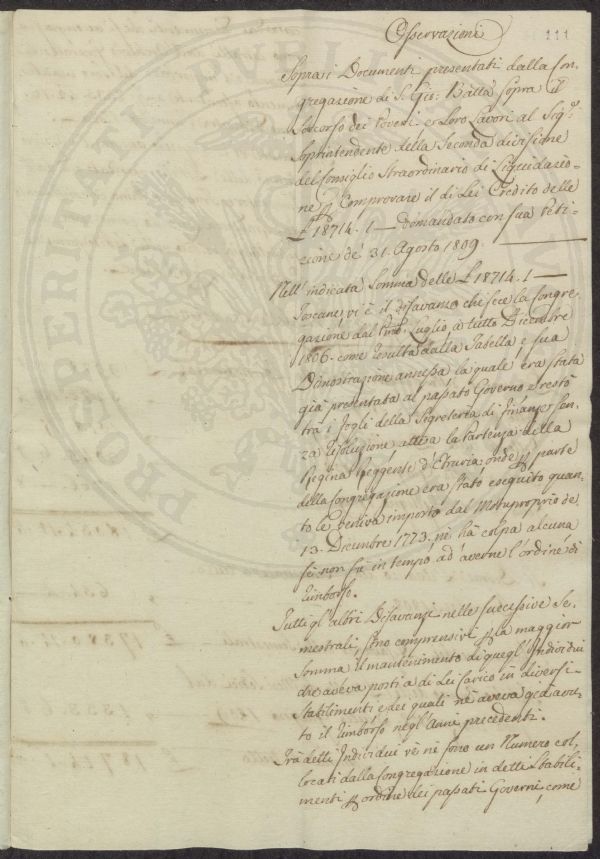 Osservazioni 111
Sopra i Documenti presentati dalla Con,,
gregazione di S. Gio: Batta Sopra il
Soccorso dei Poveri e Loro Lavori al Sig.e
Soprintendente della Seconda divisione
del Consiglio Straordinario di Liquidazio,,
ne p Comprovare il di Lei Credito delle
£ 18714. 1 — domandato con sua Peti,,
zione de' 31. Agosto 1809.
Nell' indicata Somma delle £ 18714. 1 —
Toscane, vi è il disavanzo che fece la Congre,,
gazione dal Pmo Luglio, à tutto Dicembre
1806. come resulta dalla Tabella, e sua
Dimostrazione annessa la quale era stata
già presentata al passato Governo, e restò
trà i fogli della Segreteria di finanze sen,,
za resoluzione attesa la Partenza della
Regina Reggente d'Etruria, onde p parte
della Congregazione era stato eseguito quan,,
to le veniva imposto dal Motuproprio de'
13. Dicembre 1773. nè hà colpa alcuna
se non fù in tempo ad averne l'ordine di
rimborso.
Tutti gl'altri Disavanzi nelle successive Se,,
mestrali, sono comprensivi p la maggior
Somma il mantenimento di quegl'Individui
che aveva posti a di Lei carico in diversi
Stabilimenti, e dei quali nè aveva già avu,,
to il rimborso negl'Anni precedenti.
Trà detti Individui ve ni sono un Numero col,,
locati dalla Congregazione in detti Stabili,,
menti p ordine dei passati Governi, come
PROSPERITATI PUBLICAE